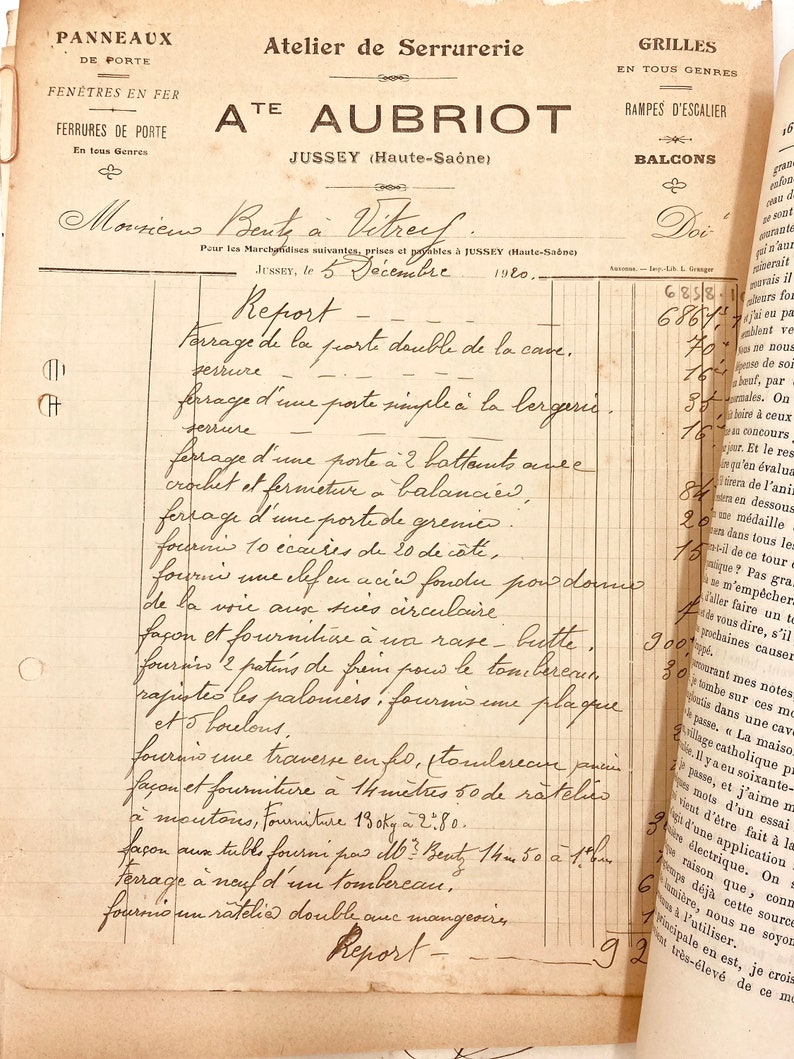 PANNEAUX
DE PORTE
FENÊTRES EN FER
FERRURES DE PORTE
En tous Genres
Atelier de Serrurerie
ATE AUBRIOT
JUSSEY (Haute-Saône)
GRILLES
EN TOUS GENRES
RAMPES D'ESCALIER
BALCONS
Monsieur Bentz à Vitrey. Doit
Pour les Marchandises suivantes, prises et payables à JUSSEY (Haute-Saône)
JUSSEY, le 5 Décembre 1920.
Auxonne. — Imp.-Lib. L. Granger
6858.1
Report
Ferrage de la porte double de la cave. 70
serrure 16
ferrage d'une porte simple à la bergerie. 35
serrure 16
ferrage d'une porte à 2 battants avec
crochet et fermeture à balancier, 84
ferrage d'une porte de grenier. 20
fourni 10 écaires de 20 de côté, 15
fourni une clef en acier fondu pour donner
de la voie aux scies circulaire
façon et fourniture à un rase-butte. 900
fourni 2 patins de frein pour le tombereau, 30
rajuster les paloniers, fourni une plaque
et 5 boulons,
fourni une traverse en (tombereau ancien
façon et fourniture à 14 mètres 50 de râtelier
à moutons, Fourniture 130 Kg à 2.80.
façon aux tubes fourni par Mr Bentz 14m 50 à
Ferrage à neuf d'un tombereau. 6
fourni un râtelier double avec mangeoire 1
Report 92
16
ne sont
courante
qui n'aur
ruinerait
trouvais il
et j'ai eu pa
semblent ve
Nous ne nous
dépense de soi
n bœuf, par
normales. On
it boire à ceux
se au concours
r jour. Et le res
dire qu'en évalua
il tirera de l'ani
restera en dessous
n une médaille
dans tous les
t-il de ce tour
pratique? Pas gra
là ne m'empêchera
d'aller faire un to
et de vous dire, s'il
prochaines causer
appé.
arcourant mes notes,
je tombe sur ces mo
nglontis dans une cav
le passe. « La maison
village catholique pr
ulée. Il y a eu soixante-
je passe, et j'aime m
ques mots d'un essai
vient d'être fait à la
agit d'une application
mière électrique. On s
que raison que, conn
temps déjà cette source
lumière, nous ne soyon
enus à l'utiliser.
principale en est, je crois
ient très-élevé de ce mo